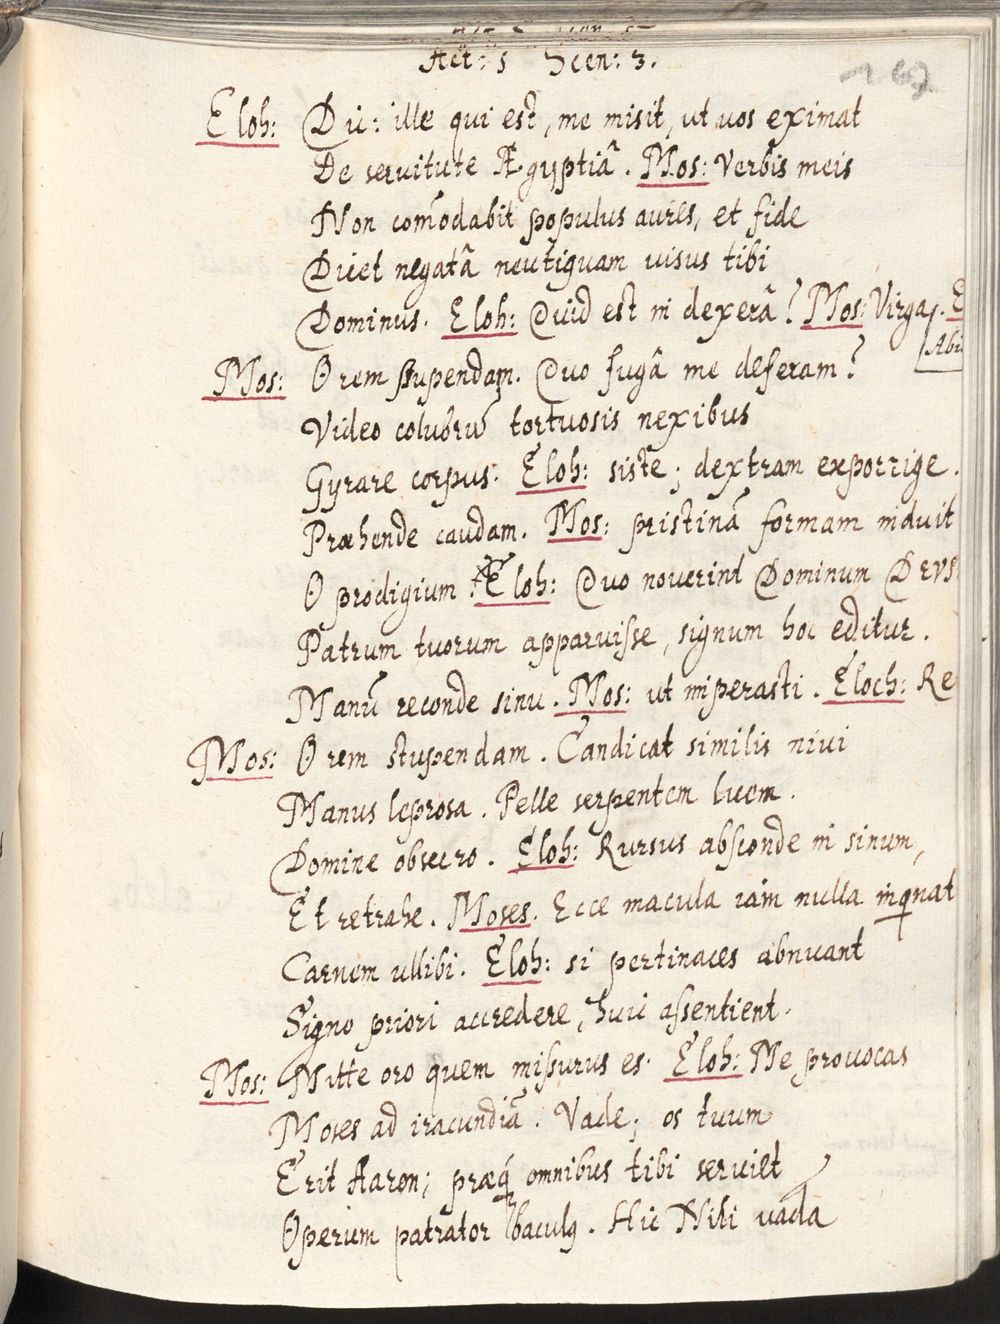 Act: 5 Scen: 3.
167
Eloh: Dic: ille qui est, me misit, ut uos eximat
De seruitute Ægyptiâ. Mos: Verbis meis
Non com̃odabit populus aures, et fide
Dicet negatâ neutiquam uisus tibi
Dominus. Eloh: Quid est in dexerâ? Mos: Virga. E
Abi
Mos: O rem stupendam. Quo fugâ me deferam?
Video colubrũ tortuosis nexibus
Gyrare corpus. Eloh: siste; dextram exporrige.
Præhende caudam. Mos: pristinã formam induit
O prodigium. Eloh: Quo nouerint Dominum Devs
Patrum tuorum apparuisse, signum hoc editur.
Manũ reconde sinu. Mos: ut imperasti. Eloch: Re
Mos: O rem stupendam. Candicat similis niui
Manus leprosa. Pelle serpentem luem.
Domine obsecro. Eloh: Rursus absconde in sinum,
Et retrahe. Moses. Ecce macula iam nulla inqnat
Carnem ullibi. Eloh: si pertinaces abnuant
Signo priori accredere, huic assentient.
Mos: Mitte oro quem missurus es. Eloh: Me prouocas
Moses ad iracundiã. Vade; os tuum
Erit Aaron; præq́ omnibus tibi seruiet
Operum patrator baculꝯ. Hic Nili vada